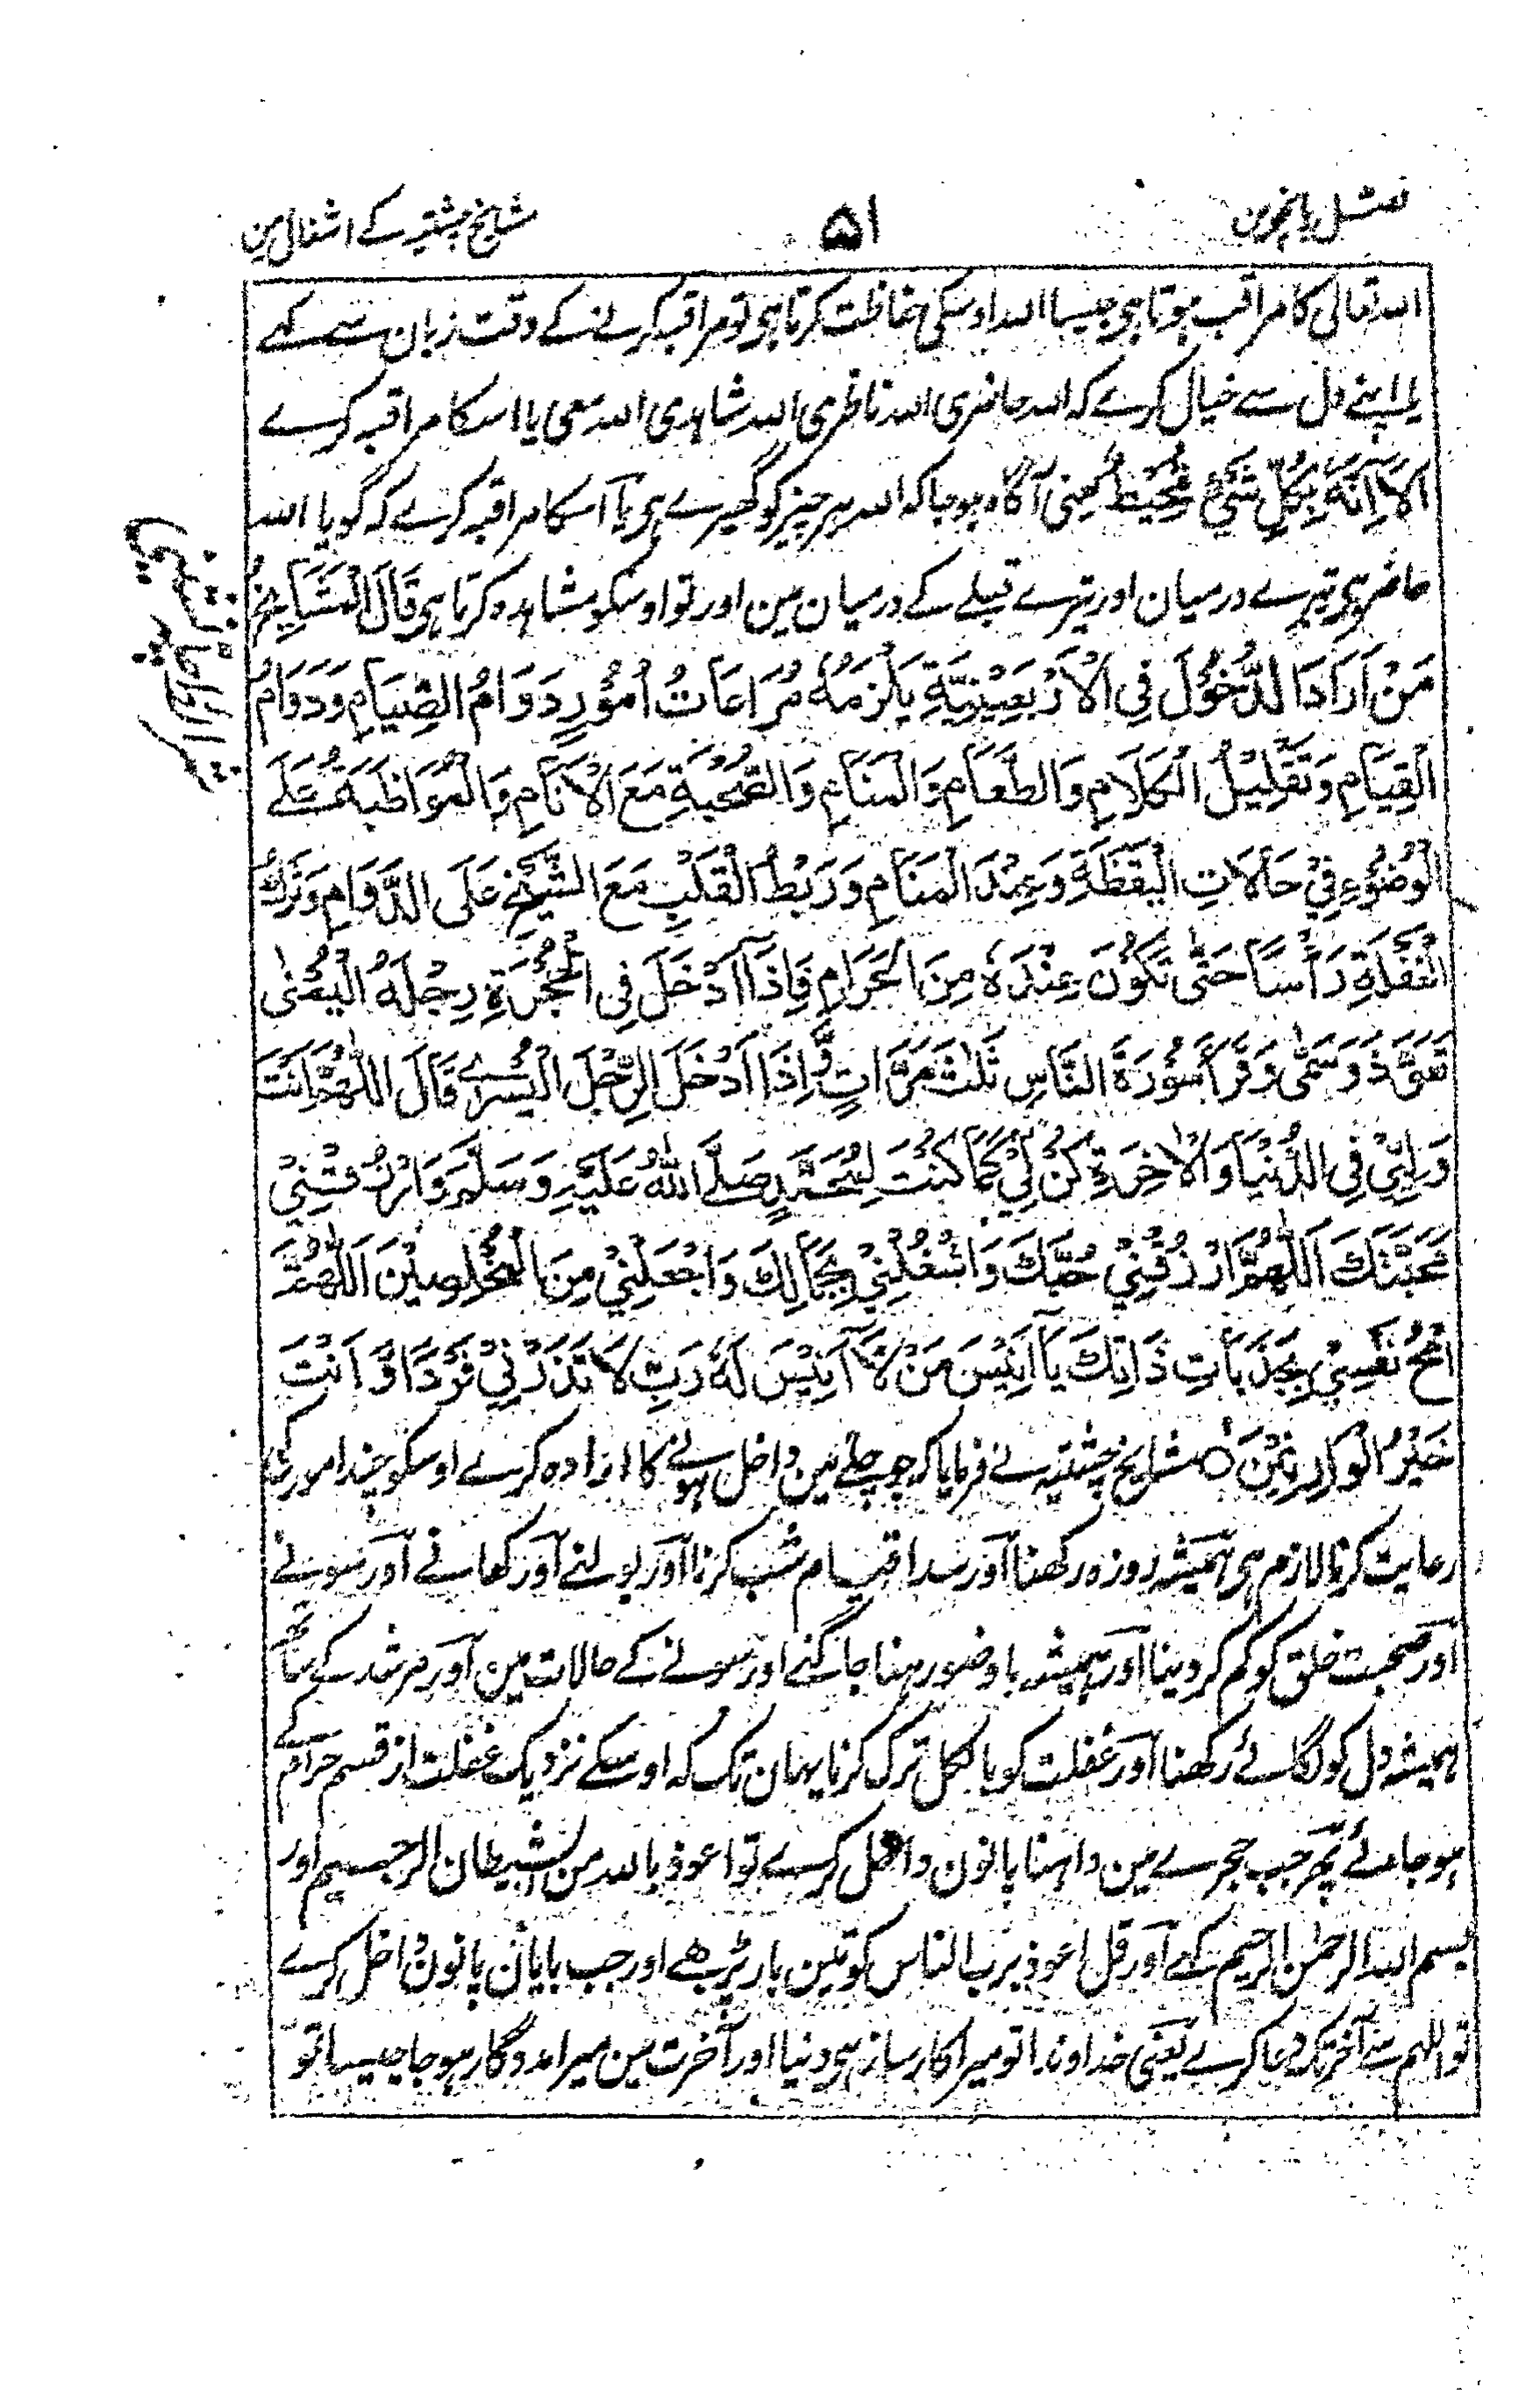 فصل پانچوین
۵۱
مشایخ چشتیہ کے اشغال مین
اللہ تعالی کا مراقب ہوتا ہی جیسا اللہ اوسکی حفاظت کرتا ہی تو مراقبہ کرنے کے وقت زبان سے کہے
یا اپنے دل سے خیال کرے کہ اللہ حاضری اللہ ناظری اللہ شاہدی اللہ معی یا اسکا مراقبہ کرے
اَلَا اِنَّهٗ بِكُلِّ شَيْءٍ مُّحِيْطٌ یعنی آگاہ ہو جا کہ اللہ ہر چیز کو گھیرے ہی یا اسکا مراقبہ کرے کہ گویا اللہ
حاضر ہی تیرے درمیان اور تیرے قبلے کے درمیان مین اور تو اوسکو مشاہدہ کرتا ہی قَالَ الْمَشَايِخُ
مَنْ اَرَادَ الدُّخُوْلَ فِى الْاَرْبَعِيْنِيَّةِ يَلْزَمُهٗ مُرَاعَاتُ اُمُوْرٍ دَوَامُ الصِّيَامِ وَدَوَامُ
الْقِيَامِ وَتَقْلِيْلُ الْكَلَامِ وَالطَّعَامِ وَالْمَنَامِ وَالصُّحْبَةِ مَعَ الْاَنَامِ وَالْمُوَاظَبَةُ عَلَى
الْوُضُوْءِ فِيْ حَالَاتِ الْيَقْظَةِ وَعِنْدَ الْمَنَامِ وَرَبْطُ الْقَلْبِ مَعَ الشَّيْخِ عَلَى الدَّوَامِ وَتَرْكُ
الْغَفْلَةِ رَأْسًا حَتّٰى تَكُوْنَ عِنْدَهٗ مِنَ الْحَرَامِ فَاِذَا اَدْخَلَ فِى الْحُجْرَةِ رِجْلَهُ الْيُمْنٰى
تَعَوَّذَ وَسَمّٰى وَقَرَأَ سُوْرَةَ النَّاسِ ثَلٰثَ مَرَّاتٍ وَّاِذَا اَدْخَلَ الرِّجْلَ الْيُسْرٰے قَالَ اللّٰهُمَّ اَنْتَ
وَلِيِّيْ فِى الدُّنْيَا وَالْاٰخِرَةِ كُنْ لِيْ كَمَا كُنْتَ لِمُحَمَّدٍ صَلَّى اللّٰهُ عَلَيْهِ وَسَلَّمَ وَارْزُقْنِيْ
مَحَبَّتَكَ اَللّٰهُمَّ ارْزُقْنِيْ حُبَّكَ وَاشْغُلْنِيْ بِجَمَالِكَ وَاجْعَلْنِيْ مِنَ الْمُخْلِصِيْنَ اَللّٰهُمَّ
امْحُ نَفْسِيْ بِجَذَبَاتِ ذَاتِكَ يَا اَنِيْسَ مَنْ لَّا اَنِيْسَ لَهٗ رَبِّ لَا تَذَرْنِيْ فَرْدًا وَّاَنْتَ
خَيْرُ الْوَارِثِيْنَ ○ مشایخ چشتیہ نے فرمایا کہ جو چلے مین داخل ہونے کا ارادہ کرے اوسکو چند امور کی
رعایت کرنا لازم ہی ہمیشہ روزہ رکھنا اور سدا قیام شب کرنا اور بولنے اور کھانے اور سونے
اور صحبت خلق کو کم کر دینا اور ہمیشہ باوضو رہنا جاگنے اور سونے کے حالات مین اور مرشد کے ساتھ
ہمیشہ دل کو لگائے رکھنا اور غفلت کو بالکل ترک کرنا یہان تک کہ اوسکے نزدیک غفلت از قسم حرام کے
ہو جائے پھر جب حجرے مین داہنا پانون داخل کرے تو اعوذ باللہ من الشیطان الرجیم اور
بسم اللہ الرحمن الرحیم کہے اور قل اعوذ برب الناس کو تین بار پڑھے اور جب بایان پانون داخل کرے
تو اللہم سے آخر تک دعا کرے یعنی خداوندا تو میرا کارساز ہی دنیا اور آخرت مین میرا مددگار ہو جا جیسا تو